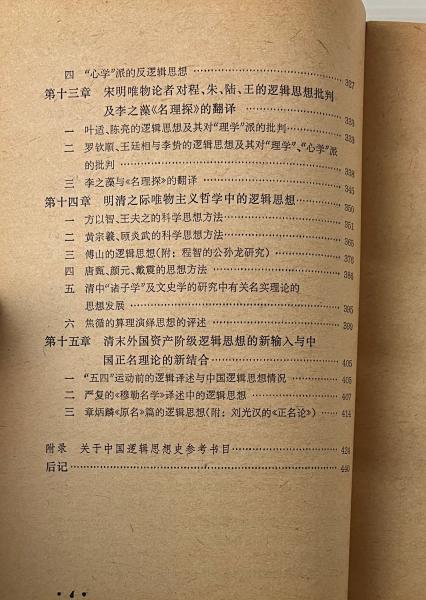 四 “心学”派的反逻辑思想 327
第十三章 宋明唯物论者对程、朱、陆、王的逻辑思想批判
及李之藻《名理探》的翻译 333
一 叶适、陈亮的逻辑思想及其对“理学”派的批判 333
二 罗钦顺、王廷相与李贽的逻辑思想及其对“理学”、“心学”派
的批判 338
三 李之藻与《名理探》的翻译 345
第十四章 明清之际唯物主义哲学中的逻辑思想 350
一 方以智、王夫之的科学思想方法 351
二 黄宗羲、顾炎武的科学思想方法 365
三 傅山的逻辑思想(附:程智的公孙龙研究) 376
四 唐甄、颜元、戴震的思想方法 386
五 清中“诸子学”及文史学的研究中有关名实理论的
思想发展 395
六 焦循的算理演绎思想的评述 399
第十五章 清末外国资产阶级逻辑思想的新输入与中
国正名理论的新结合 405
一 “五四”运动前的逻辑译述与中国逻辑思想情况 405
二 严复的《穆勒名学》译述中的逻辑思想 407
三 章炳麟《原名》篇的逻辑思想(附:刘光汉的《正名论》) 414
附录 关于中国逻辑思想史参考书目 424
后记 440
• 4 •